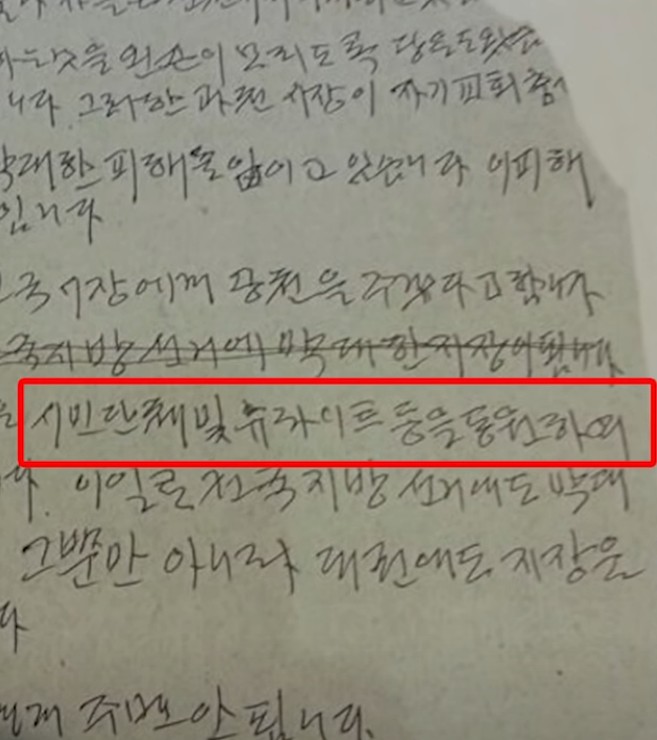 것을 왼손이 모리도록 당을 도왔습
니다 그러한 과천시장이 자기교회
막대한 피해를 입이고 있습니다 이피해
입니다
시장에게 공천을 주겠다고 합니다
국지방선거에 막대한지장이됩니다
시민단체및 뉴라이트 등을 동원하여
이일로 전국지방선거에도 막대
그뿐만 아니라 대선에도 지장을
다
주면 안됩니다.